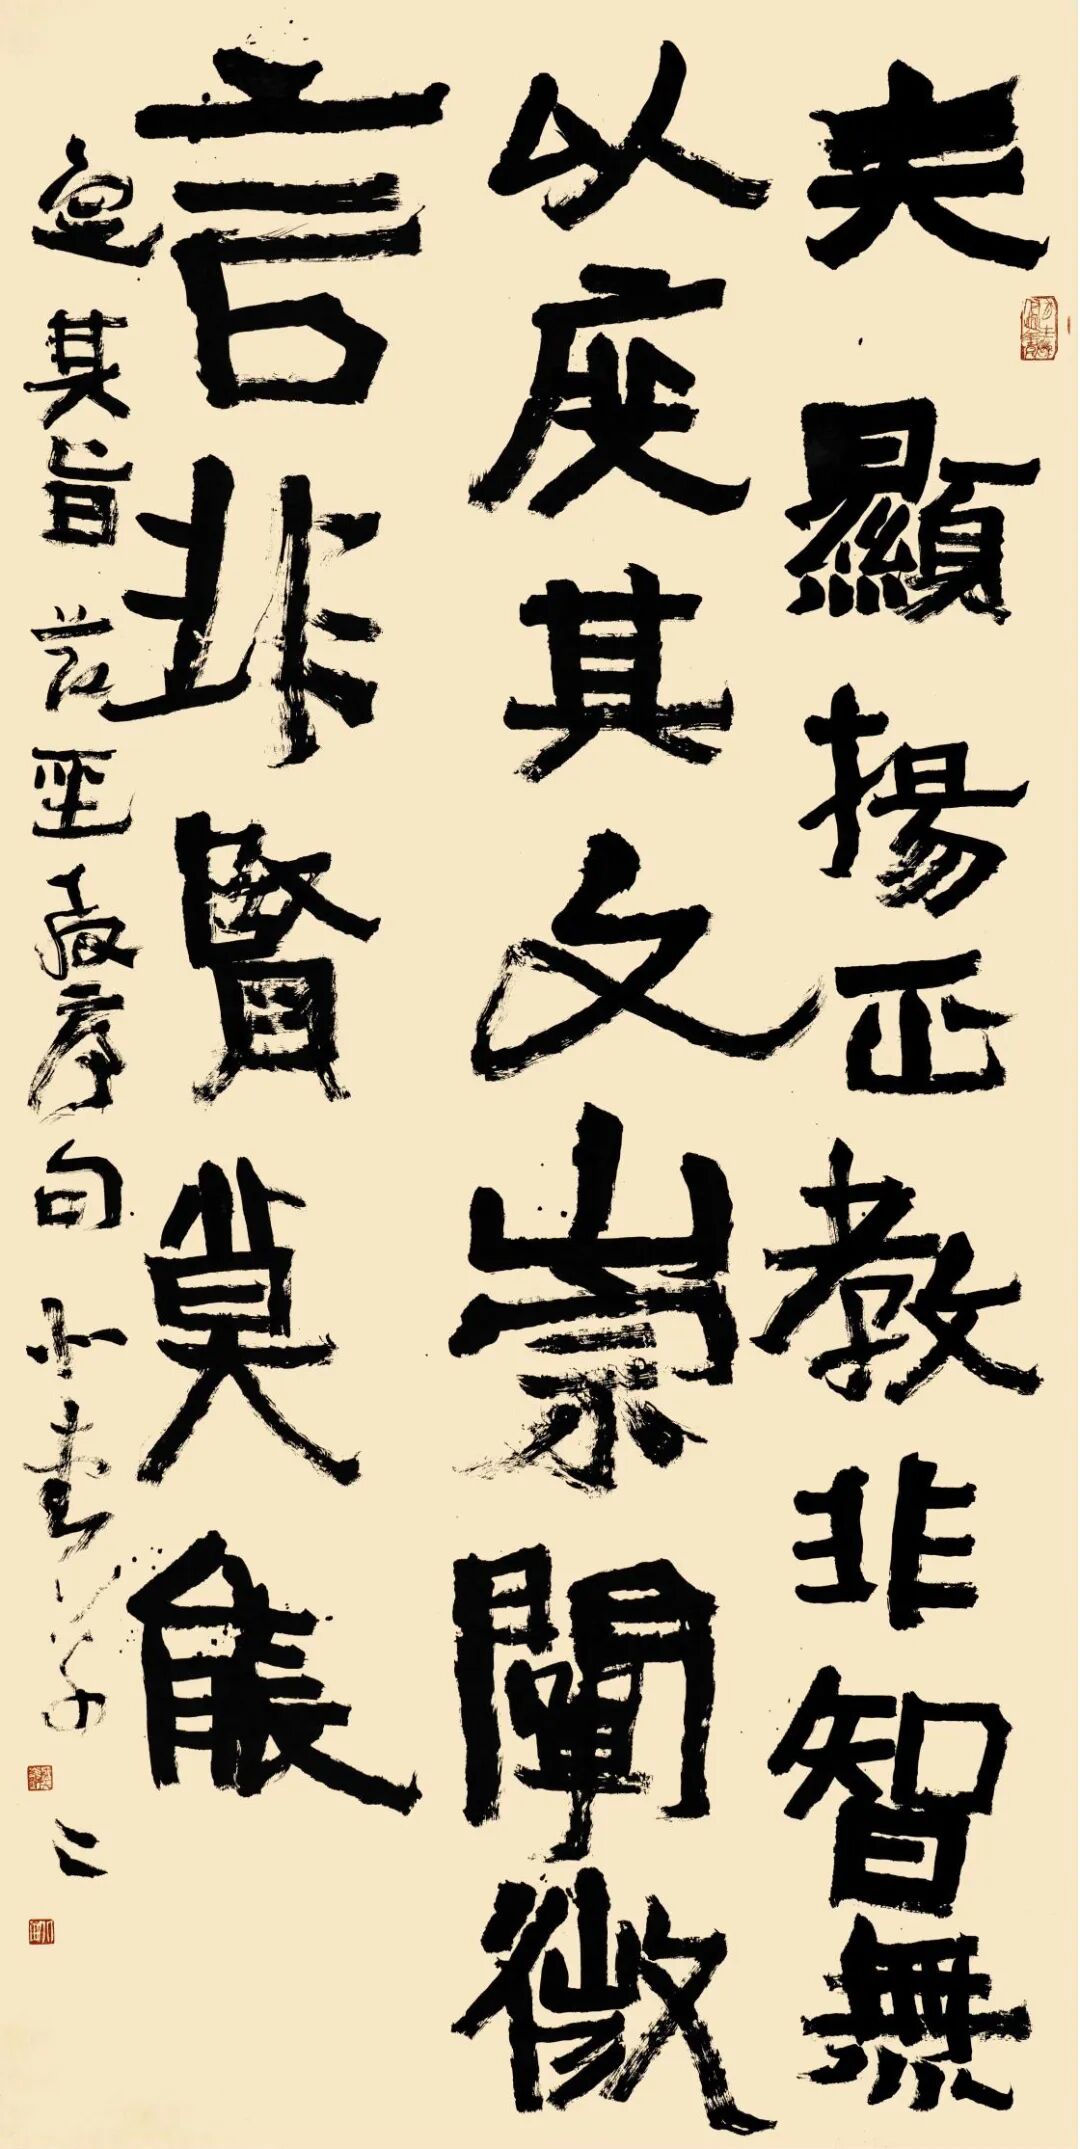 夫顯揚正教非智無
以廣其文崇闡微
言非賢莫能
定其旨 聖教序句